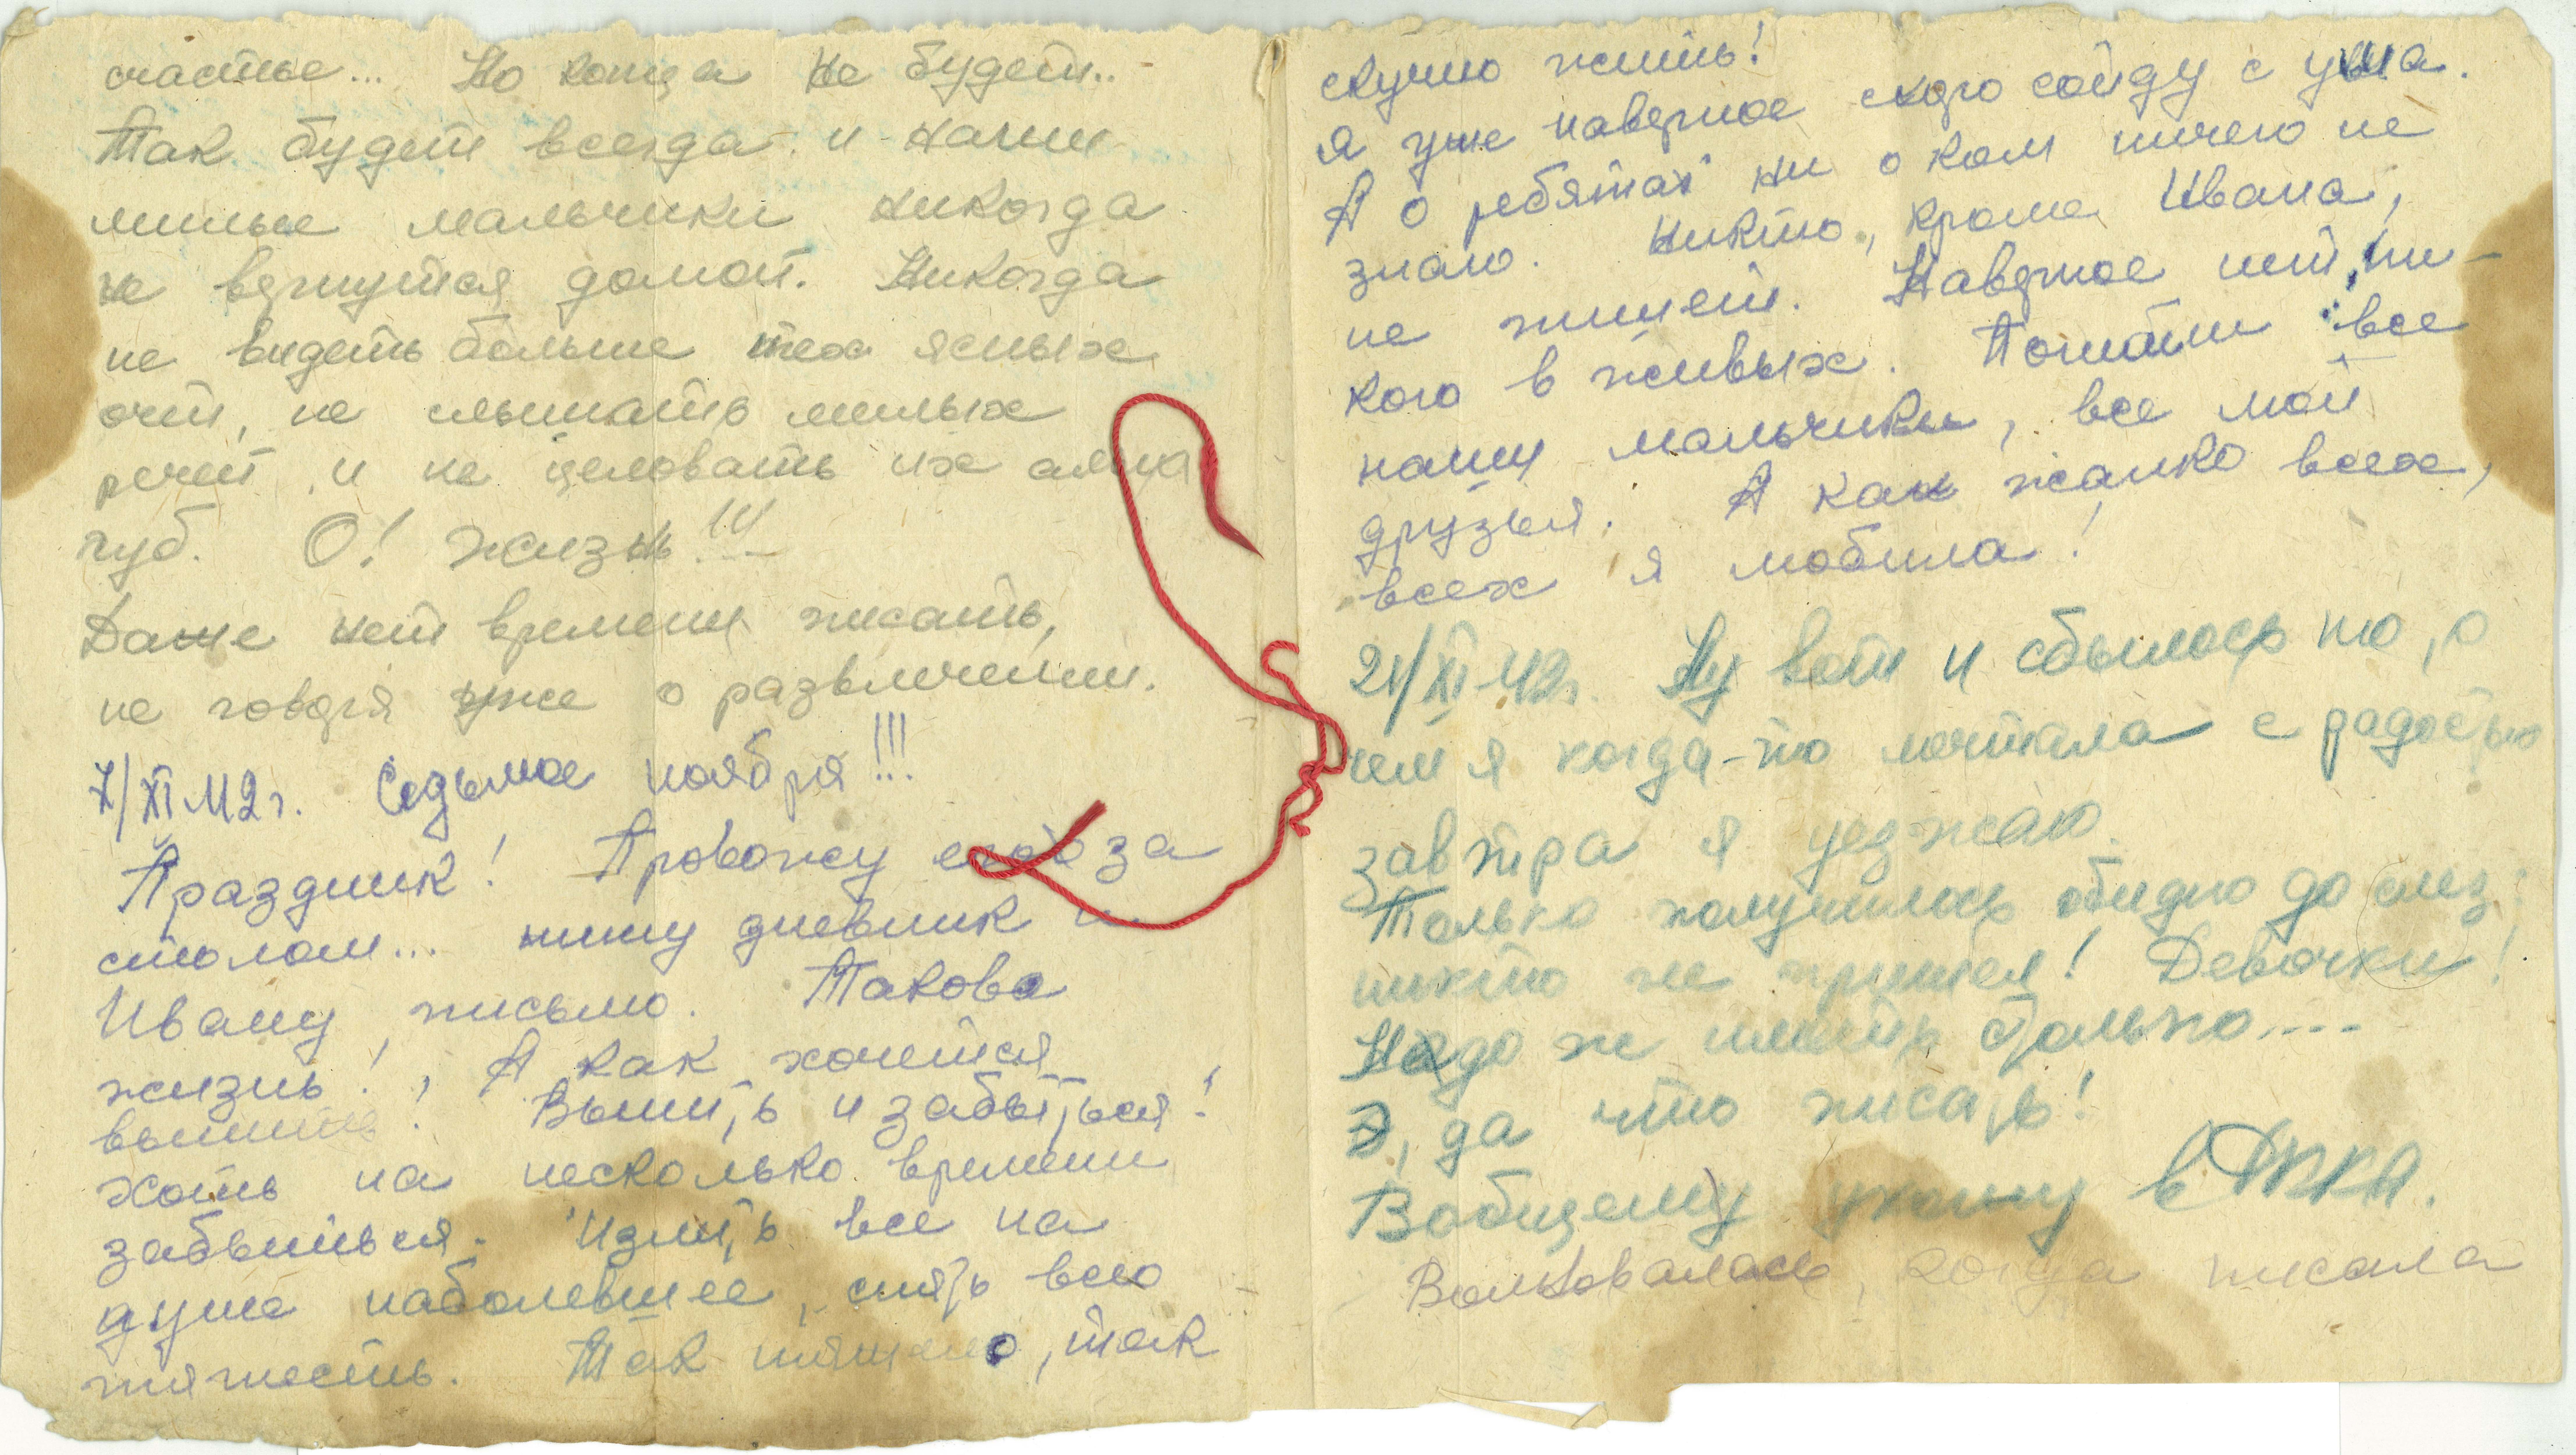 счастье... Но конца не будет..
Так будет всегда и наши
милые мальчики никогда
не вернутся домой. Никогда
не видеть больше тех ясных
очей, не слышать милых
речей и не целовать их алых
губ. О! Жизнь!!!
Даже нет времени писать,
не говоря уже о развлечении.
7/XI 42 г. Седьмое ноября!!!
Праздник! Провожу его за
столом... пишу дневник и
Ивану письмо. Такова
жизнь! А как хочется
выпить! Выпить и забыться!
Хоть на несколько времени
забыться. Излить все на
душе наболевшее, снять всю
тяжесть. Так тяжело, так
скучно жить!
Я уже наверное скоро сойду с ума.
А о ребятах ни о ком ничего не
знаю. Никто, кроме Ивана,
не пишет. Наверное нет ни-
кого в живых. Погибли все
наши мальчики, все мои
друзья. А как жалко всех,
всех я любила!
21/XI 42 г. Ну вот и сбылось то, о
чем я когда-то мечтала с радостью
завтра я уезжаю.
Только получилось обидно до слез:
никто не пришел! Девочки!
Надо ж иметь столько....
Э, да что писать!
Вобщему ухожу в РККА.
Волновалась, когда писала